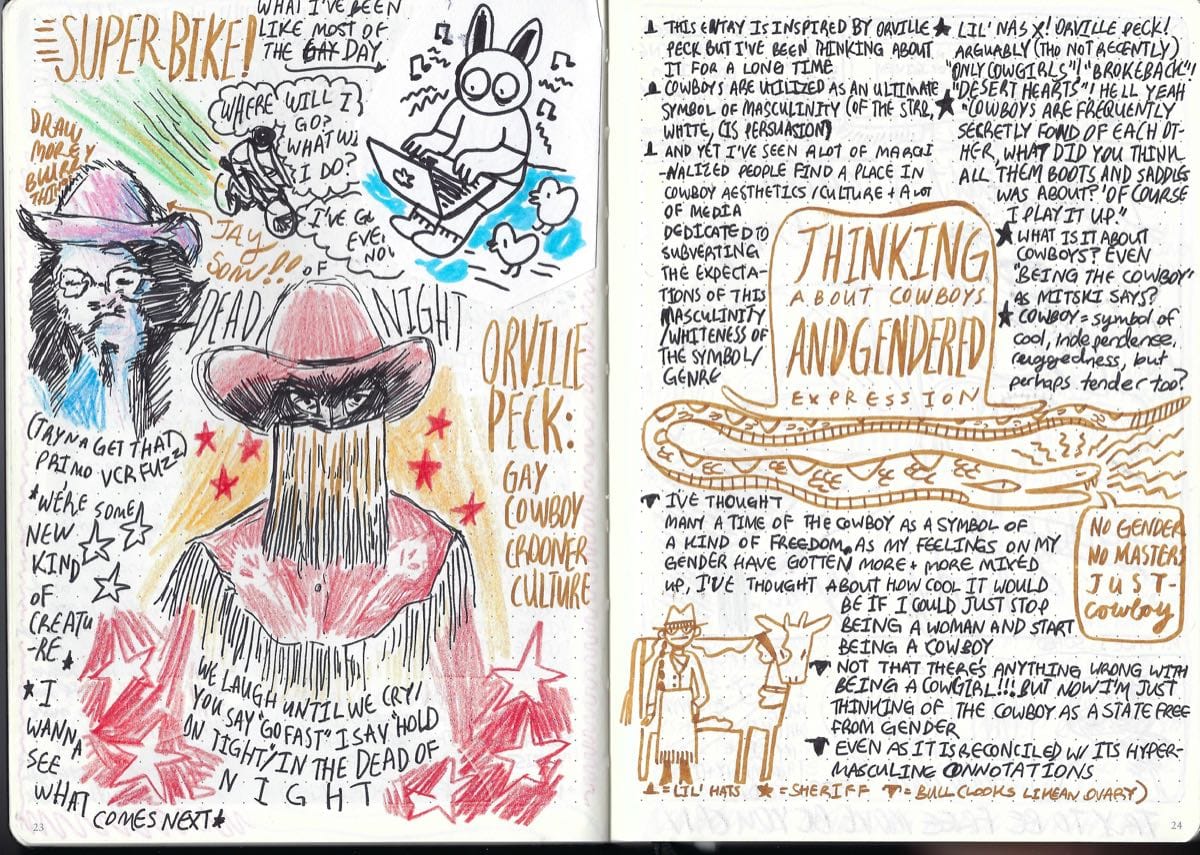 SUPERBIKE!
WHAT I'VE BEEN
LIKE MOST OF
THE GAY DAY
DRAW
MORE
BLURRY
THINGS
WHERE WILL I
GO?
WHAT WI
I DO?
I'VE
EVE
NOW
JAY
SOM!!
DEAD OF NIGHT
ORVILLE
PECK:
GAY
COWBOY
CROONER
CULTURE
(TRYNA GET THAT
PRIMO VCR FUZZ)
*WE'RE SOME
NEW
KIND
OF
CREATU
-RE★
★I
WANNA
SEE
WHAT COMES NEXT★
WE LAUGH UNTIL WE CRY/
YOU SAY "GO FAST" I SAY "HOLD
ON TIGHT"/IN THE DEAD OF
NIGHT
23
THIS ENTRY IS INSPIRED BY ORVILLE
PECK BUT I'VE BEEN THINKING ABOUT
IT FOR A LONG TIME
COWBOYS ARE UTILIZED AS AN ULTIMATE
SYMBOL OF MASCULINITY (OF THE STR8,
WHITE, CIS PERSUASION)
AND YET I'VE SEEN A LOT OF MARGI
-NALIZED PEOPLE FIND A PLACE IN
COWBOY AESTHETICS/CULTURE + A LOT
OF MEDIA
DEDICATED TO
SUBVERTING
THE EXPECTA-
TIONS OF THIS
MASCULINITY
/WHITENESS OF
THE SYMBOL/
GENRE
★ LIL' NAS X! ORVILLE PECK!
ARGUABLY (THO NOT RECENTLY)
"ONLY COWGIRLS"! "BROKEBACK"!
"DESERT HEARTS"! HELL YEAH
★ "COWBOYS ARE FREQUENTLY
SECRETLY FOND OF EACH OT-
HER, WHAT DID YOU THINK
ALL THEM BOOTS AND SADDLES
WAS ABOUT? 'OF COURSE
I PLAY IT UP."
★ WHAT IS IT ABOUT
COWBOYS? EVEN
"BEING THE COWBOY"
AS MITSKI SAYS?
★ COWBOY = symbol of
cool, independense,
ruggedness, but
perhaps tender too?
THINKING
ABOUT COWBOYS
AND GENDERED
EXPRESSION
▼ I'VE THOUGHT
MANY A TIME OF THE COWBOY AS A SYMBOL OF
A KIND OF FREEDOM. AS MY FEELINGS ON MY
GENDER HAVE GOTTEN MORE + MORE MIXED
UP, I'VE THOUGHT ABOUT HOW COOL IT WOULD
BE IF I COULD JUST STOP
BEING A WOMAN AND START
BEING A COWBOY
▼ NOT THAT THERE'S ANYTHING WRONG WITH
BEING A COWGIRL!!! BUT NOW I'M JUST
THINKING OF THE COWBOY AS A STATE FREE
FROM GENDER
▼ EVEN AS IT IS RECONCILED W/ ITS HYPER-
MASCULINE CONNOTATIONS
NO GENDER
NO MASTERS
JUST-
COWBOY
= LIL' HATS ★ = SHERIFF ▼ = BULL (LOOKS LIKE AN OVARY)
24